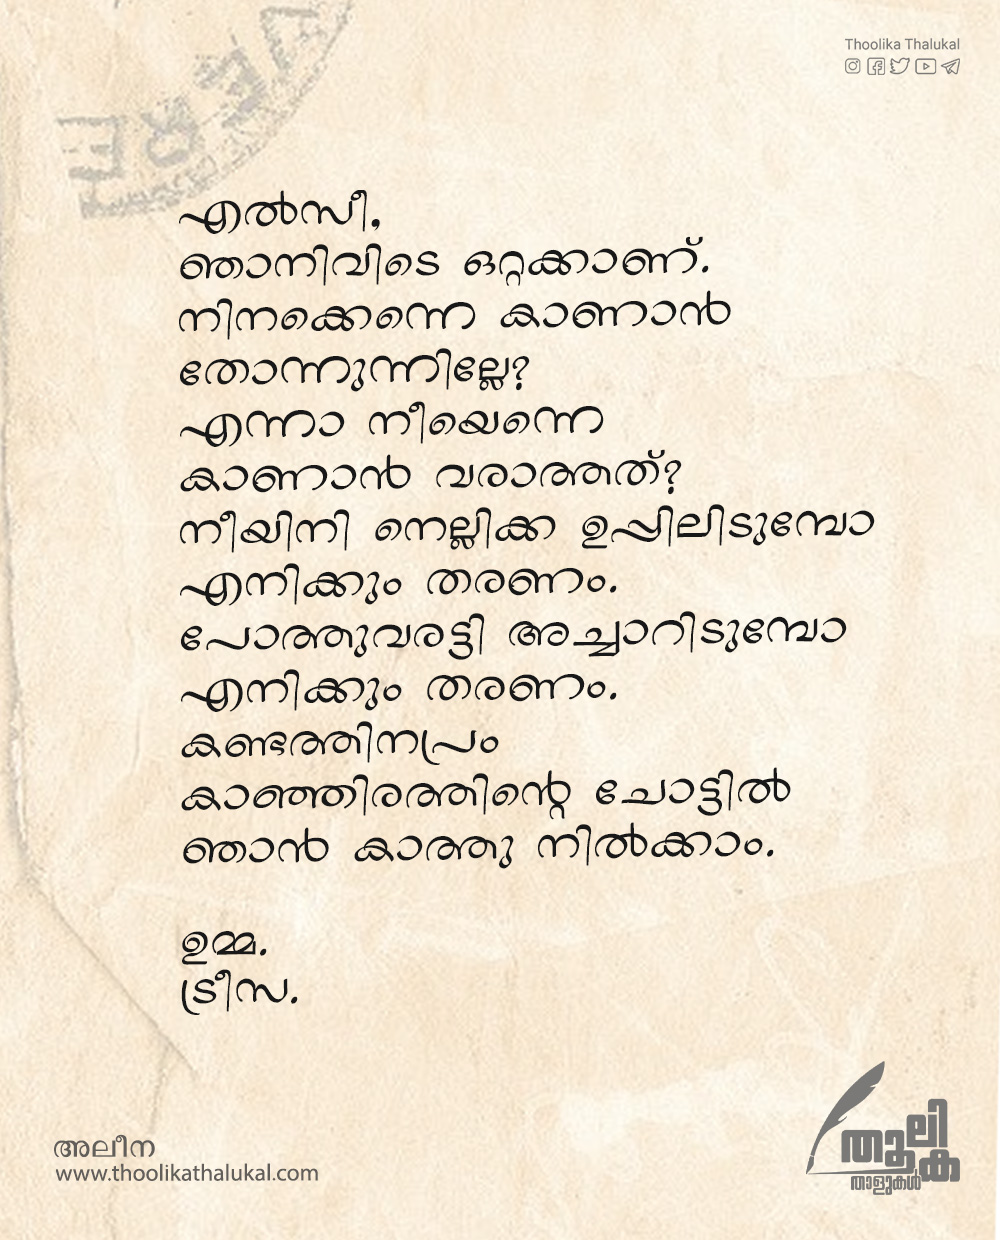 Thoolika Thalukal
എൽസീ,
ഞാനിവിടെ ഒറ്റക്കാണ്.
നിനക്കെന്നെ കാണാൻ
തോന്നുന്നില്ലേ?
എന്നാ നീയെന്നെ
കാണാൻ വരാത്തത്?
നീയിനി നെല്ലിക്ക ഉപ്പിലിടുമ്പോ
എനിക്കും തരണം.
പോത്തുവരട്ടി അച്ചാറിടുമ്പോ
എനിക്കും തരണം.
കണ്ടത്തിനപ്രം
കാഞ്ഞിരത്തിന്റെ ചോട്ടിൽ
ഞാൻ കാത്തു നിൽക്കാം.
ഉമ്മ.
ട്രീസ.
അലീന
www.thoolikathalukal.com
തൂലിക
താളുകൾ